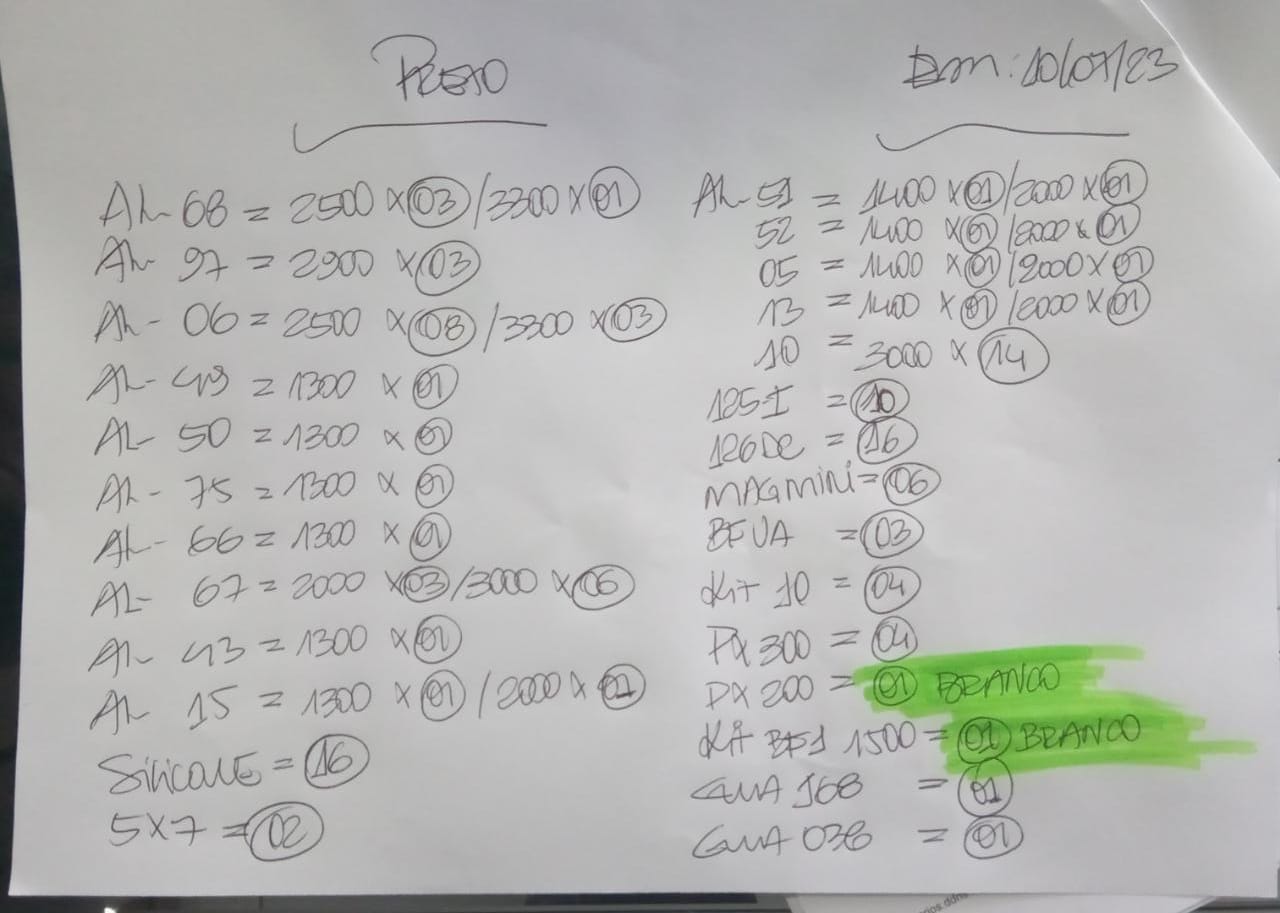 PRETO
10/07/23
AL- 68 = 2500 x 03 / 3300 x 01
AL- 97 = 2900 x 03
AL- 06 = 2500 x 08 / 3300 x 03
AL- 49 = 1300 x 01
AL- 50 = 1300 x 01
AL- 75 = 1300 x 01
AL- 66 = 1300 x 01
AL- 67 = 2000 x 03 / 3000 x 06
AL- 43 = 1300 x 01
AL 15 = 1300 x 01 / 2000 x 01
SILICONE = 16
5x7 = 02
AL- 51 = 1400 x 01 / 2000 x 01
52 = 1400 x 01 / 2000 x 01
05 = 1400 x 01 / 2000 x 01
13 = 1400 x 01 / 2000 x 01
10 = 3000 x 14
125I = 10
126DC = 16
MAGMINI = 06
BFVA = 03
Kit 10 = 04
PX 300 = 04
PX 200 = 01 BRANCO
Kit BF1 1500 = 01 BRANCO
GUA 168 = 01
GUA 038 = 01